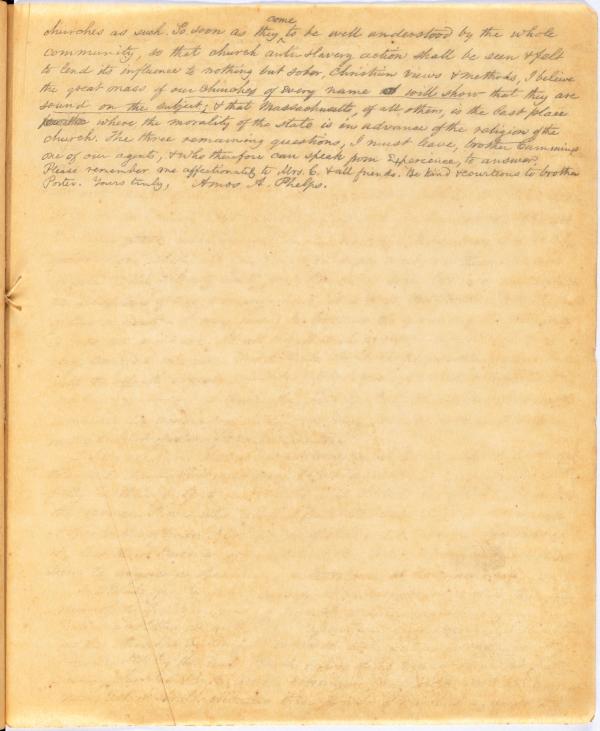 come
churches as such. So soon as they ^ to be well understood by the whole
community, so that church anti-slavery action shall be seen & felt
to lend its influence to nothing but sober, Christian views & methods, I believe
the great mass of our churches of every name will show that they are
sound on the subject; & that Massachusetts, of all others, is the last place
where the morality of the state is in advance of the religion of the
church. The three remaining questions, I must leave, brother Cummings
one of our agents, & who therefore can speak from experience, to answer.
Please remember me affectionately to Mrs. C. & all friends. Be kind & courteous to brother
Porter. Yours truly, Amos A. Phelps.